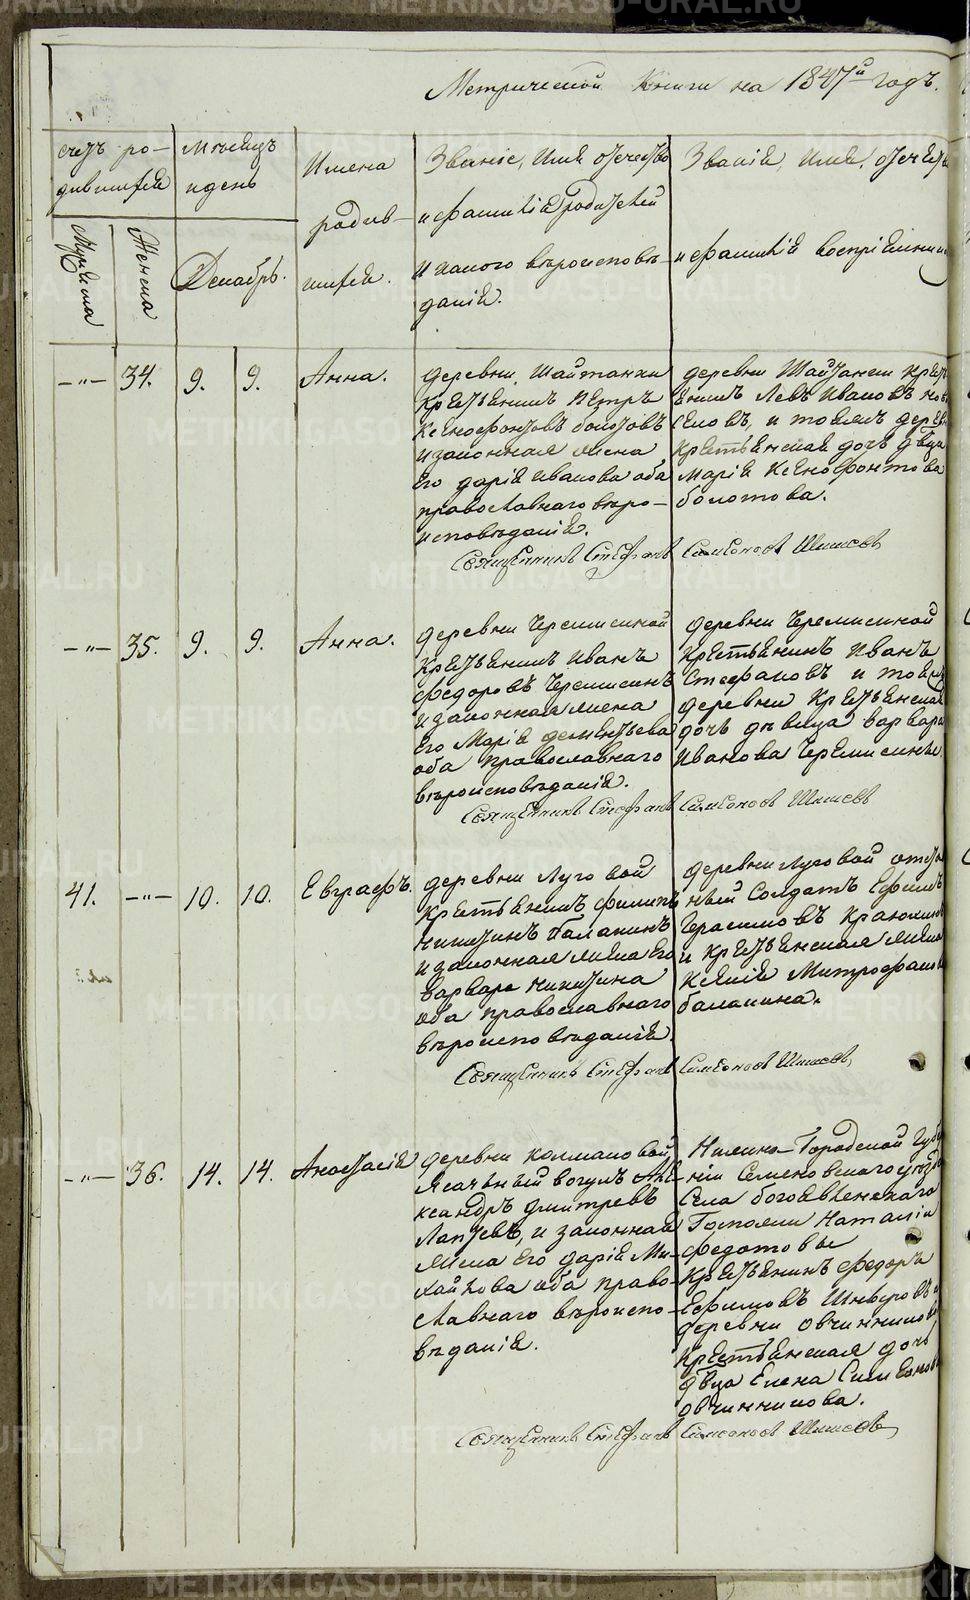 Метрической Книги на 1847й годъ.
счетъ ро-
дившихся
Мужеска
Женска
мѣсяцъ
и день
Декабрь.
Имена
родив-
шихся.
Званіе, Имя отечество
и фамилія Родителей
и какого вѣроисповѣ-
данія.
Званіе, Имя, отечест
и фамилія воспріемник
-"- 34. 9. 9. Анна.
деревни Шайтанки
крестьянинъ Петръ
Ксенофонтовъ болотовъ
и законная жена
Его дарія Иванова оба
православнаго вѣро-
исповѣданія.
деревни Шайтанки крест
янинъ Левъ Ивановъ
и тояжъ дерев
крестьянская дочь дѣвца
Марія Ксенофонтова
болотова.
Священникъ Стефанъ Симеоновъ Шишевъ
-"- 35. 9. 9. Анна.
деревни Черемисиной
крестьянинъ Иванъ
Федоровъ Черемисинъ
и законная жена
Его Марія дементьева
оба православнаго
вѣроисповѣданія.
деревни Черемисиной
крестьянинъ Иванъ
Стефановъ и тояжъ
деревни крестьянская
дочь дѣвица варвара
Иванова Черемисины.
Священникъ Стефанъ Симеоновъ Шишевъ
41. -"- 10. 10. Евграфъ.
деревни Луговой
крестьянинъ филипъ
никитинъ балакинъ
и законная жена Его
варвара никитина
оба православнаго
вѣроисповѣданія.
деревни Луговой отста
ный Солдатъ Ефимъ
Герасимовъ
и крестьянская жена
Ксенія Митрофанов
балакина.
Священникъ Стефанъ Симеоновъ Шишевъ
-"- 36. 14. 14. Анастасія
деревни колмаковой
Ясачный вогулъ Але-
ксандръ дмитревъ
Лаптевъ, и законная
жена Его дарія Ми-
хайлова оба право-
славнаго вѣроиспо-
вѣданія.
Нижно-Городской Губер
ніи Семеновскаго уѣзда
Села богоявленскаго
Госпожи Наталіи
Федотовы
крестьянинъ Федоръ
Ефимовъ и
деревни овчинниковой
крестьянская дочь
дѣвца Елена Симеонова
овчинникова.
Священникъ Стефанъ Симеоновъ Шишевъ
METRIKI.GASO-URAL.RU